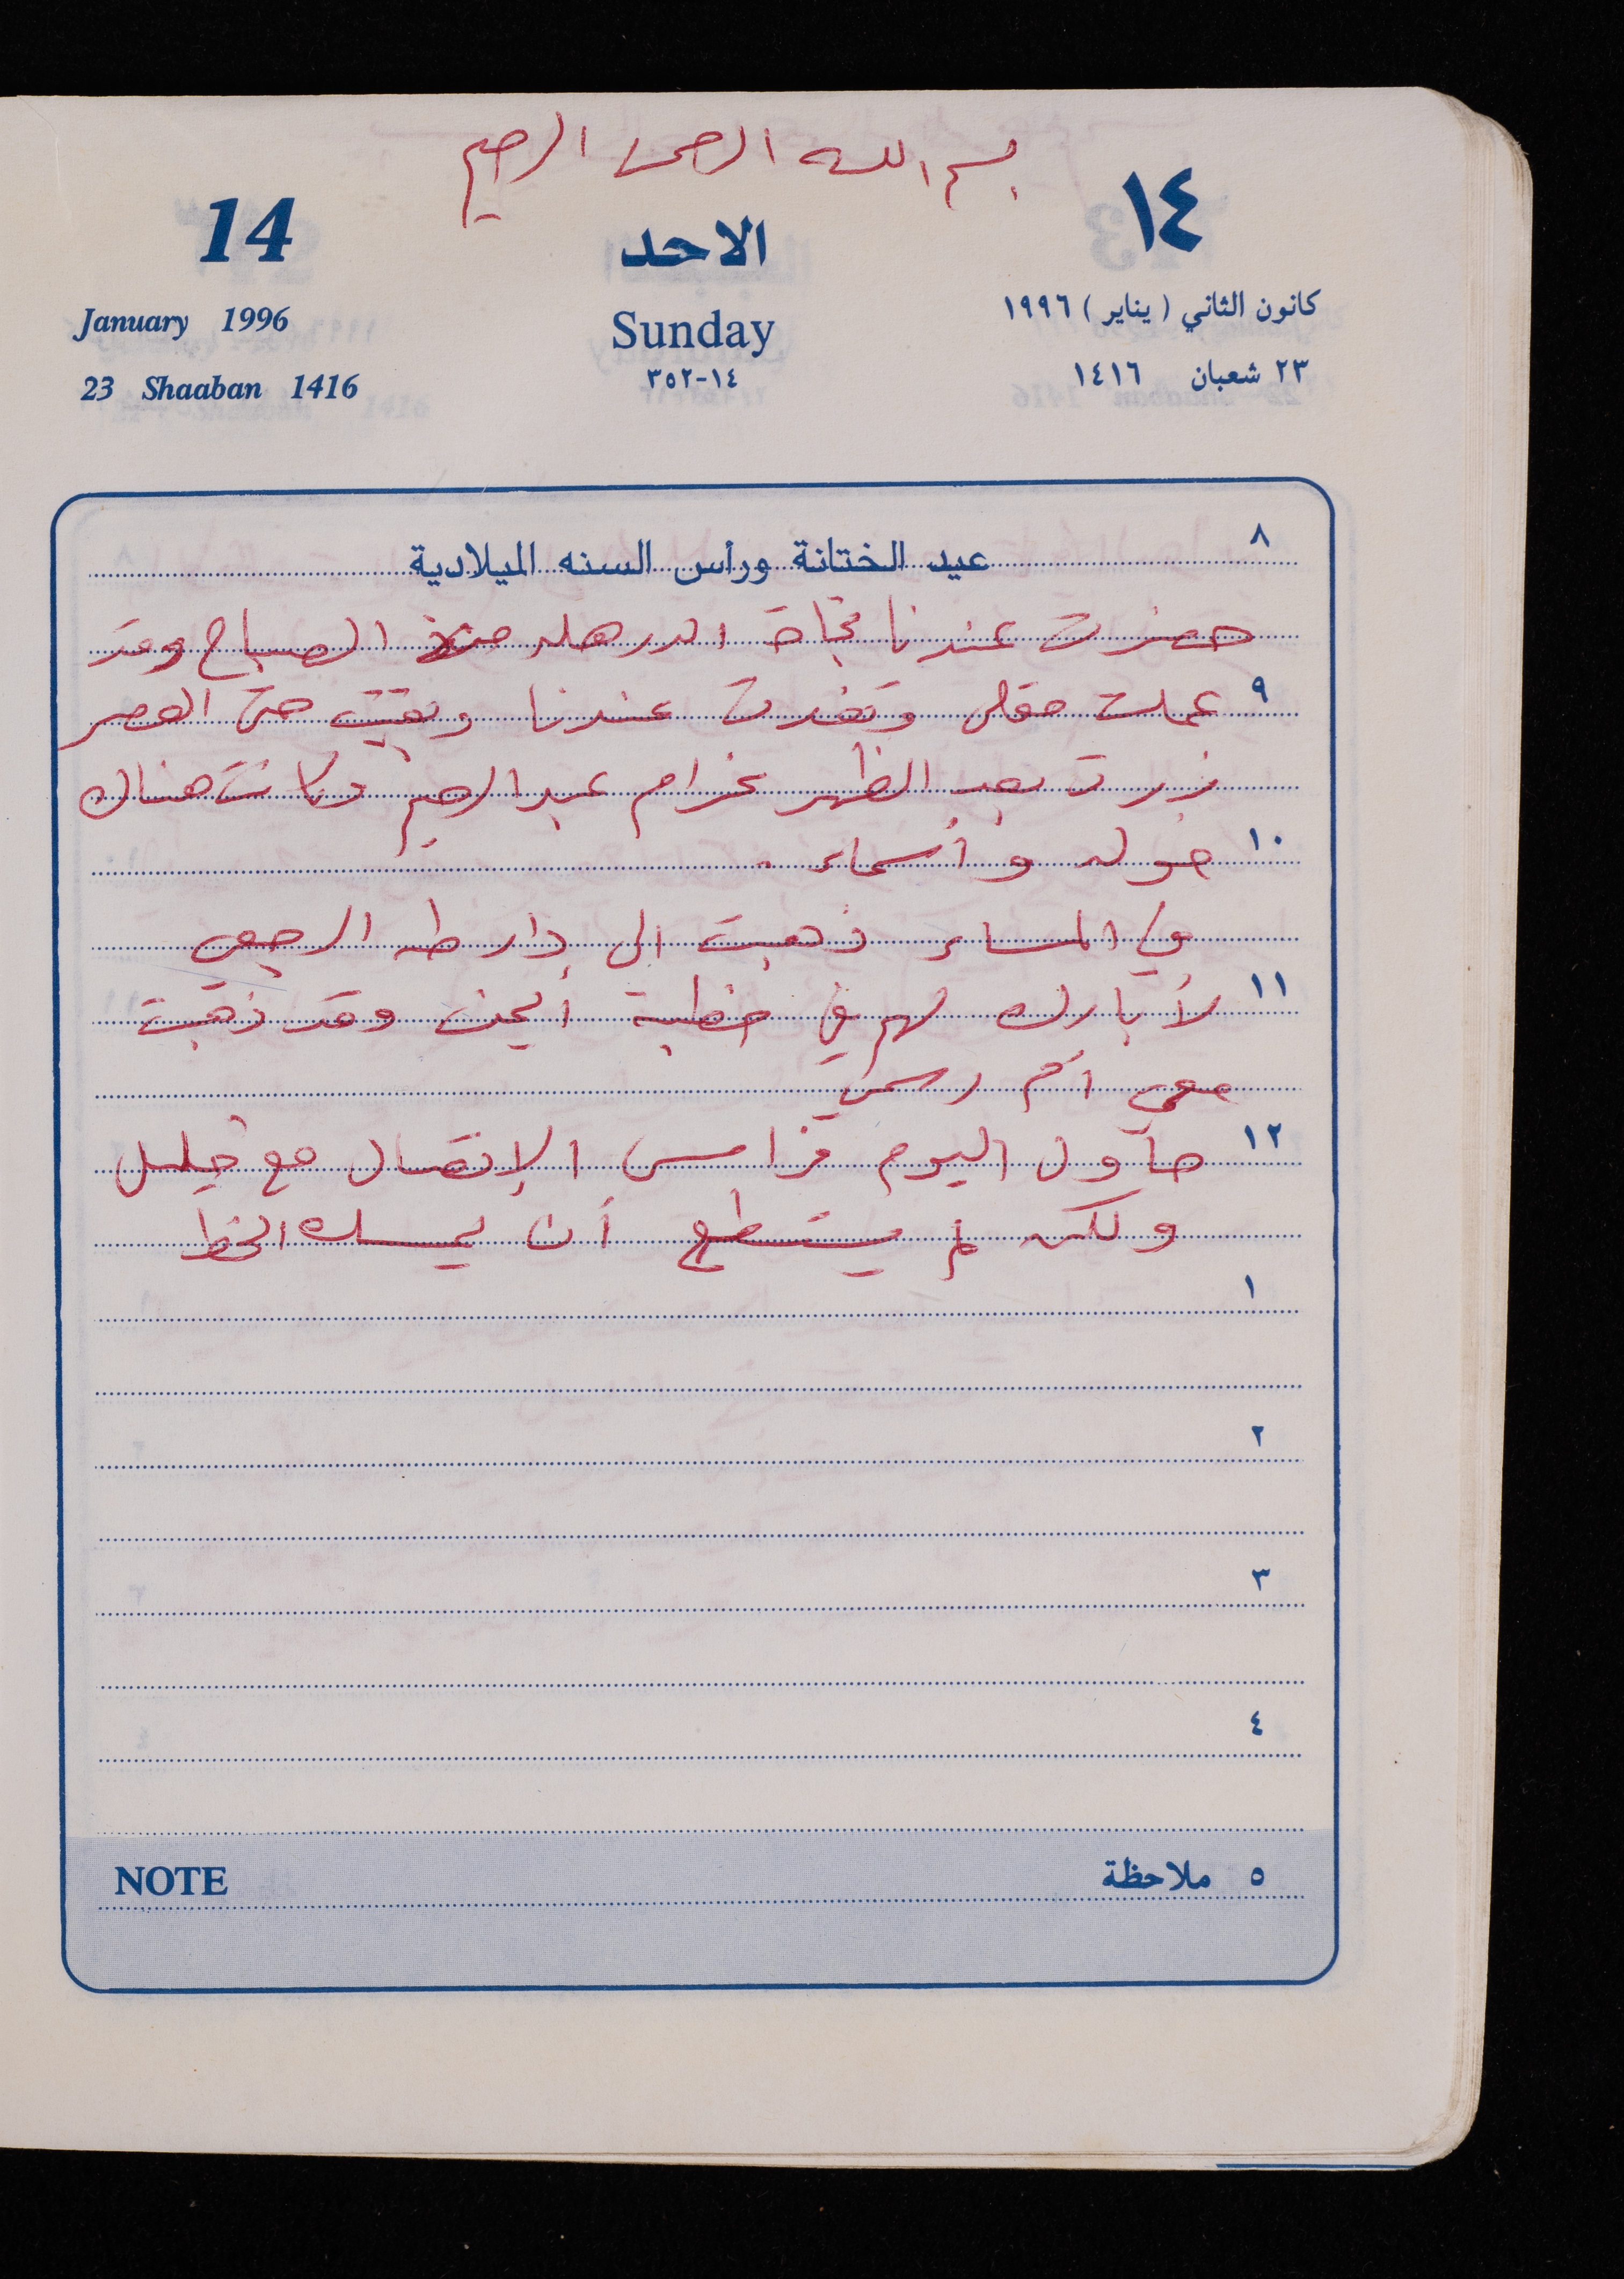 بسم الله الرحمن الرحيم
14
الاحد
١٤
January 1996
Sunday
كانون الثاني ( يناير ) ١٩٩٦
23 Shaaban 1416
١٤-٣٥٢
٢٣ شعبان ١٤١٦
٨
عيد الختانة ورأس السنه الميلادية
حضرت عندنا نجاة منذ الصباح وقد
٩ عملت مقلي وتغدت عندنا وبقيت حتى العصر
زرت بعد الظهر غرام عبد الرحيم وكانت هناك
١٠ خوله وأسماء .
في المساء ذهبت الى دار طه الرجعي
١١ لأبارك لهم في خطبة أيمن وقد ذهبت
معي أم رسمي
١٢ حاول اليوم فراس الإتصال مع خليل
ولكن لم يستطع أن يمسك الخط
١
٢
٣
٤
NOTE
٥ ملاحظة